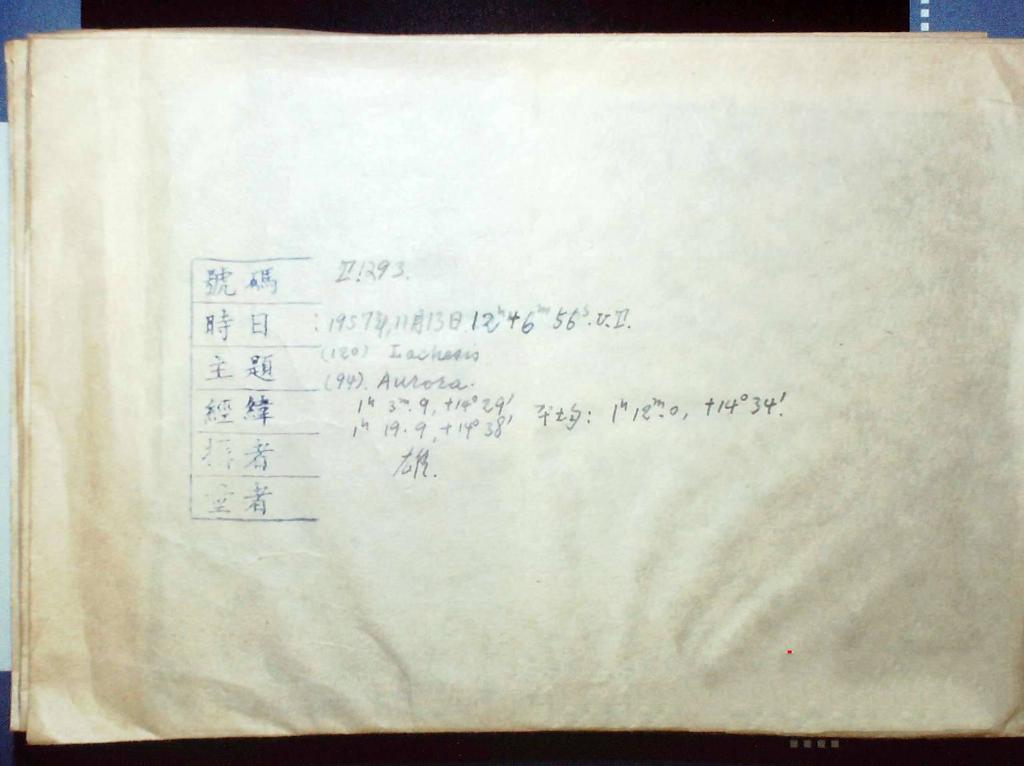 號碼 Π1293.
時日 : 1957年,11月13日 12ʰ46ᵐ56ˢ.U.T.
主題 (120) Lachesis
(94). Aurora.
經緯 1ʰ 3ᵐ.9, +14°29′
1ʰ 19.9, +14°38′ 平均: 1ʰ12ᵐ.0, +14°34′.
者
者